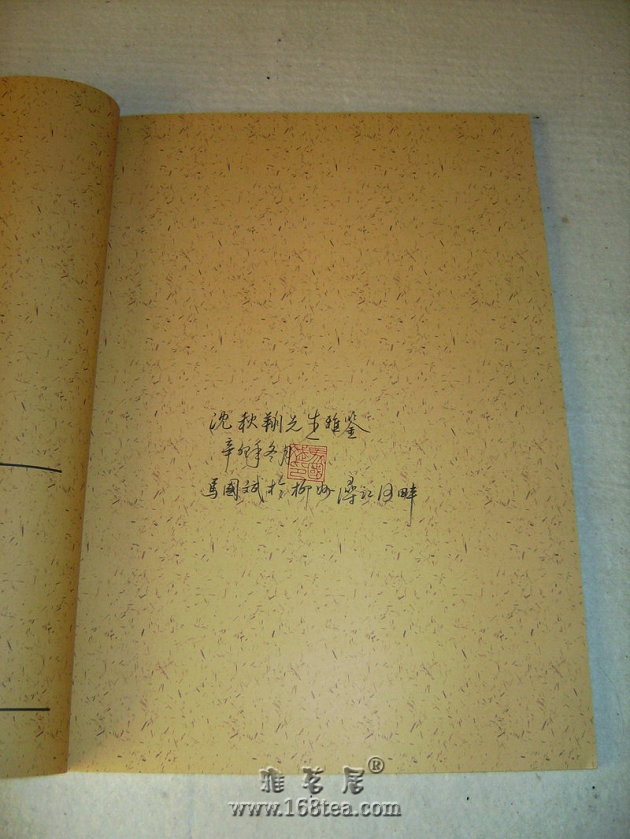 沈秋翔先生雅鉴
辛卯年冬月
馬國斌於柳州潯江河畔
雅茗居®
www.168tea.com